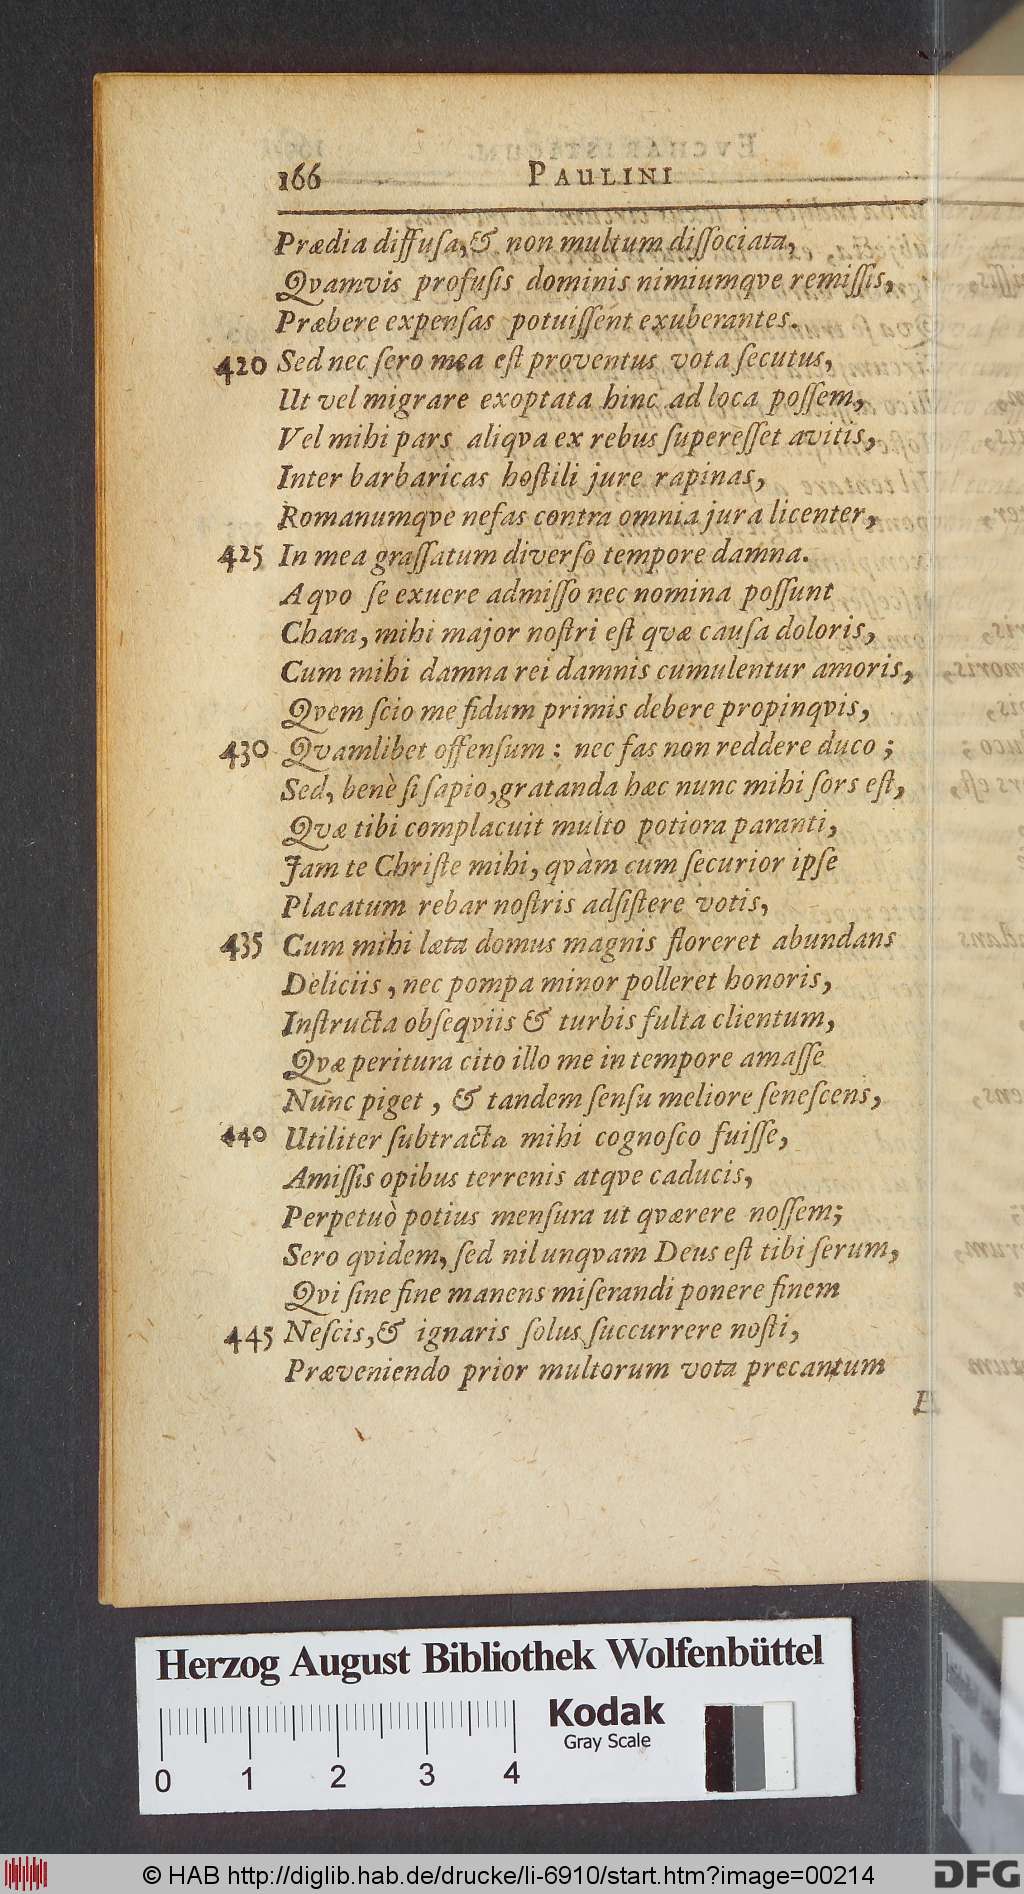 166 PAULINI
Prædia diffuſa, & non multum diſſociata,
Qvamvis profuſis dominis nimiumqve remiſſis,
Præbere expenſas potuiſſent exuberantes.
420 Sed nec ſero mea eſt proventus vota ſecutus,
Ut vel migrare exoptata hinc ad loca poſſem,
Vel mihi pars aliqva ex rebus ſupereſſet avitis,
Inter barbaricas hoſtili jure rapinas,
Romanumqve nefas contra omnia jura licenter,
425 In mea graſſatum diverſo tempore damna.
A qvo ſe exuere admiſſo nec nomina poſſunt
Chara, mihi major noſtri eſt qvæ cauſa doloris,
Cum mihi damna rei damnis cumulentur amoris,
Qvem ſcio me fidum primis debere propinqvis,
430 Qvamlibet offenſum: nec fas non reddere duco;
Sed, benè ſi ſapio, gratanda hæc nunc mihi ſors eſt,
Qvæ tibi complacuit multo potiora paranti,
Jam te Chriſte mihi, qvàm cum ſecurior ipſe
Placatum rebar noſtris adſiſtere votis,
435 Cum mihi læta domus magnis floreret abundans
Deliciis, nec pompa minor polleret honoris,
Inſtructa obſeqviis & turbis fulta clientum,
Qvæ peritura cito illo me in tempore amaſſe
Nunc piget, & tandem ſenſu meliore ſeneſcens,
440 Utiliter ſubtracta mihi cognoſco fuiſſe,
Amiſſis opibus terrenis atqve caducis,
Perpetuò potius menſura ut qværere noſſem;
Sero qvidem, ſed nil unqvam Deus eſt tibi ſerum,
Qvi ſine fine manens miſerandi ponere finem
445 Neſcis, & ignaris ſolus ſuccurrere noſti,
Præveniendo prior multorum vota precantum
Herzog August Bibliothek Wolfenbüttel
Kodak
Gray Scale
0 1 2 3 4
© HAB http://diglib.hab.de/drucke/li-6910/start.htm?image=00214
DFG